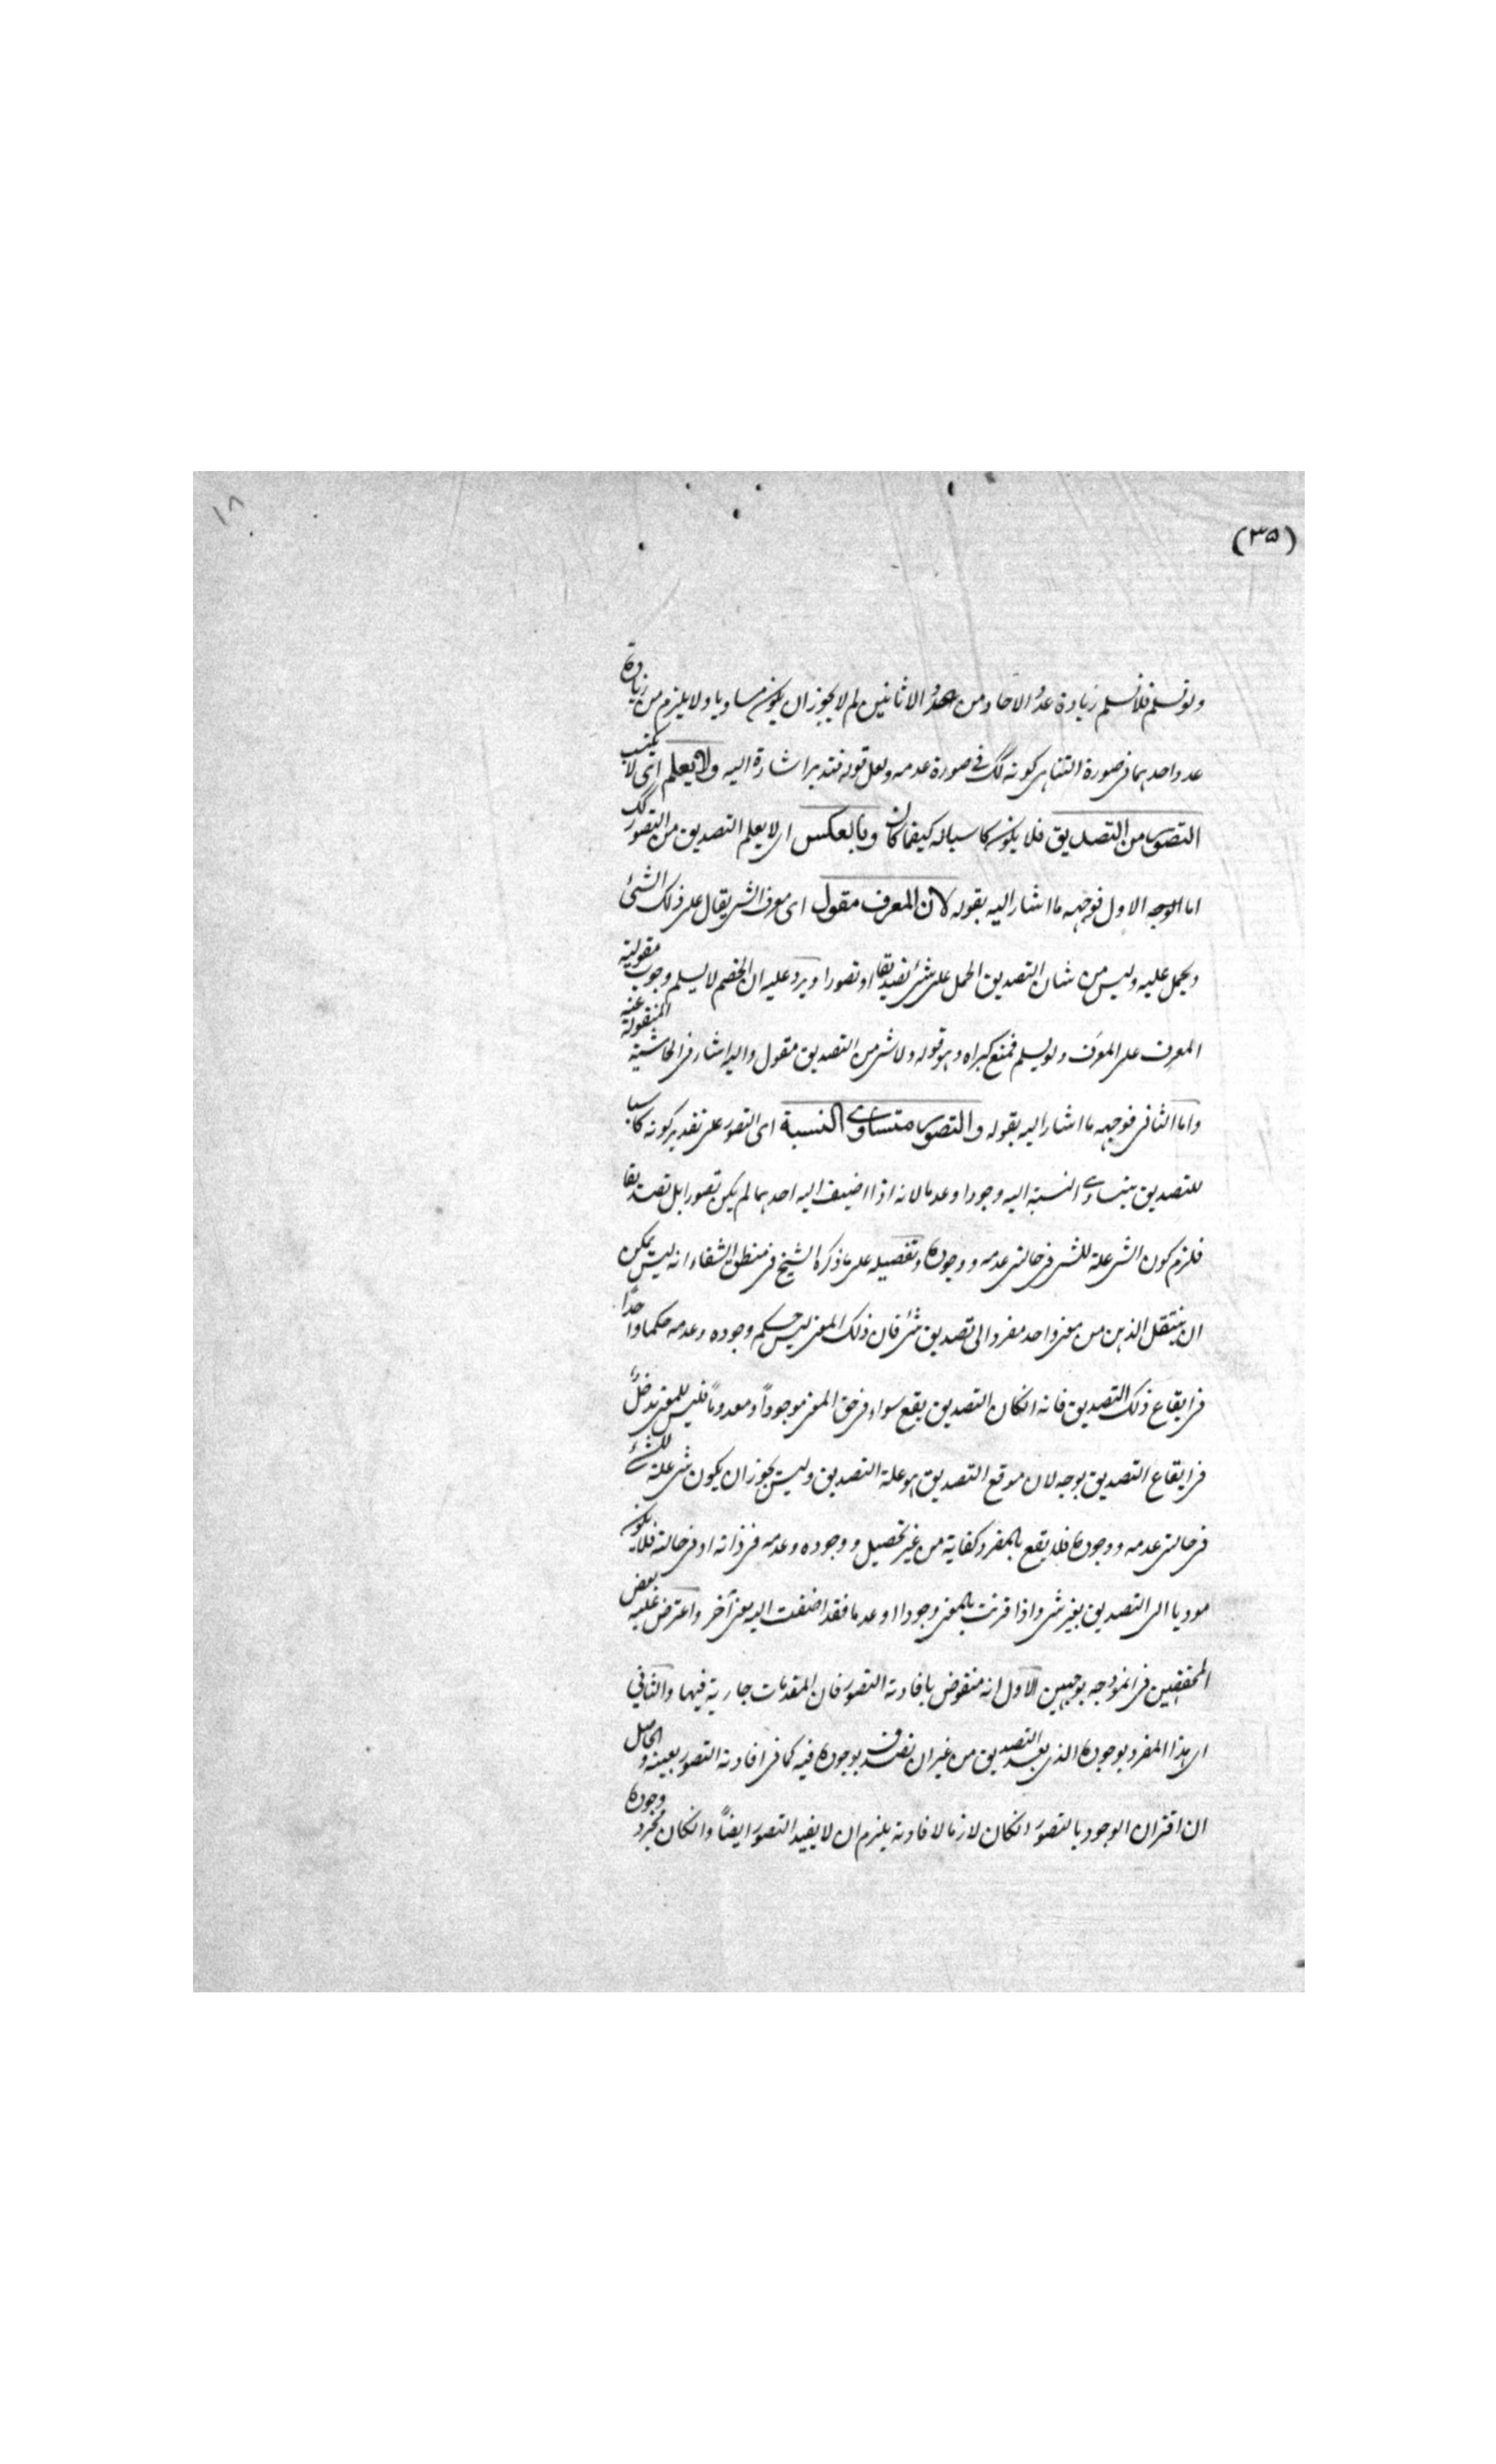 ١٨
(٣٥)
ولو نسلم فلا نسلم زيادة عدد الآحاد من عدد الاثانين لم لا يجوز ان يكون مساويا ولا يلزم من زيادة
عدد احدهما فى صورة التناهى كونه كك فى صورة عدمه ولعل قوله فتدبر اشارة اليه ولا يعلم اى لا يكتسب
التصور من التصديق فلا يكون كاسبا له كيفما كان وبالعكس اى لا يعلم التصديق من التصور كك
اما الوجه الاول فوجهه ما اشار اليه بقوله لان المعرف مقول اى معرف الشئ يقال على ذلك الشئ
ويحمل عليه وليس من شان التصديق الحمل على شئ تصديقا او تصورا ويرد عليه ان الخصم لا يسلم وجوب مقولية
المعرِف على المعرَف ولو يسلم فمنع كبراه وهو قوله ولا شئ من التصديق مقول واليه اشار فى الحاشية المنقولة عنه
واما الثانى فوجهه ما اشار اليه بقوله والتصور متساوى النسبة اى التصور على تقدير كونه كاسبا
للتصديق يتساوى النسبة اليه وجودا وعدما لانه اذا اضيف اليه احدهما لم يكن تصورا بل تصديقا
فلزم كون الشئ علة للشئ فى حالتى عدمه ووجوده وتفصيله على ما ذكره الشيخ فى منطق الشفاء انه ليس يمكن
ان ينتقل الذهن من معنى واحد مفرد الى تصديق شئ فان ذلك المعنى ليس حكم وجوده وعدمه حكما واحدًا
فى ايقاع ذلك التصديق فانه انكان التصديق يقع سواء فرض المعنى موجوداً او معدوماً فليس للمعنى مدخلٌ
فى ايقاع التصديق بوجه لان موقع التصديق هو علة التصديق وليس يجوز ان يكون شئ علة للشئ
فى حالتى عدمه ووجوده فلا يقع بالمفرد كفاية من غير تحصيل ووجوده وعدمه فى ذاته او فى حالته فلا يكون
موديا الى التصديق بغير شئ واذا قرنت بالمعنى وجودا او عدما فقد اضفت اليه معنى آخر واعترض عليه بعض
المحققين فى انموذجه بوجهين الاول انه منقوض بافادته التصور فان المقدمات جارية فيها والثانى
ان هذا المفرد بوجوده الذى يفيد التصديق من غير ان تصدق بوجوده فيه كما فى افادته التصور بعينه والحاصل
ان اقتران الوجود بالتصور انكان لازما لافادته يلزم ان لا يفيد التصور ايضاً وانكان مجرد وجوده